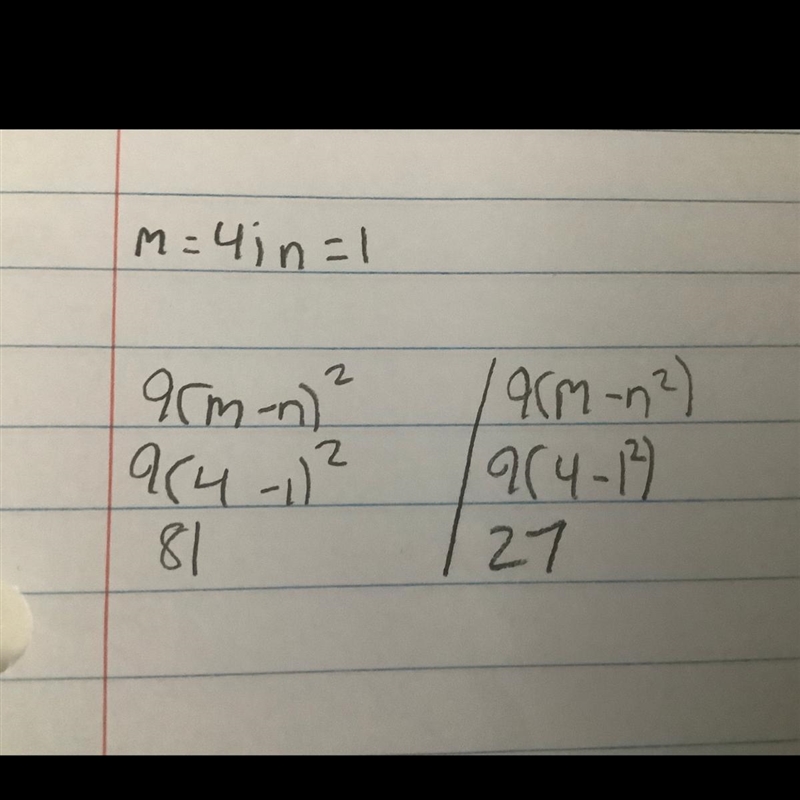 m = 4; n = 1
9(m - n)² / 9(m - n²)
9(4 - 1)² / 9(4 - 1²)
81 / 27